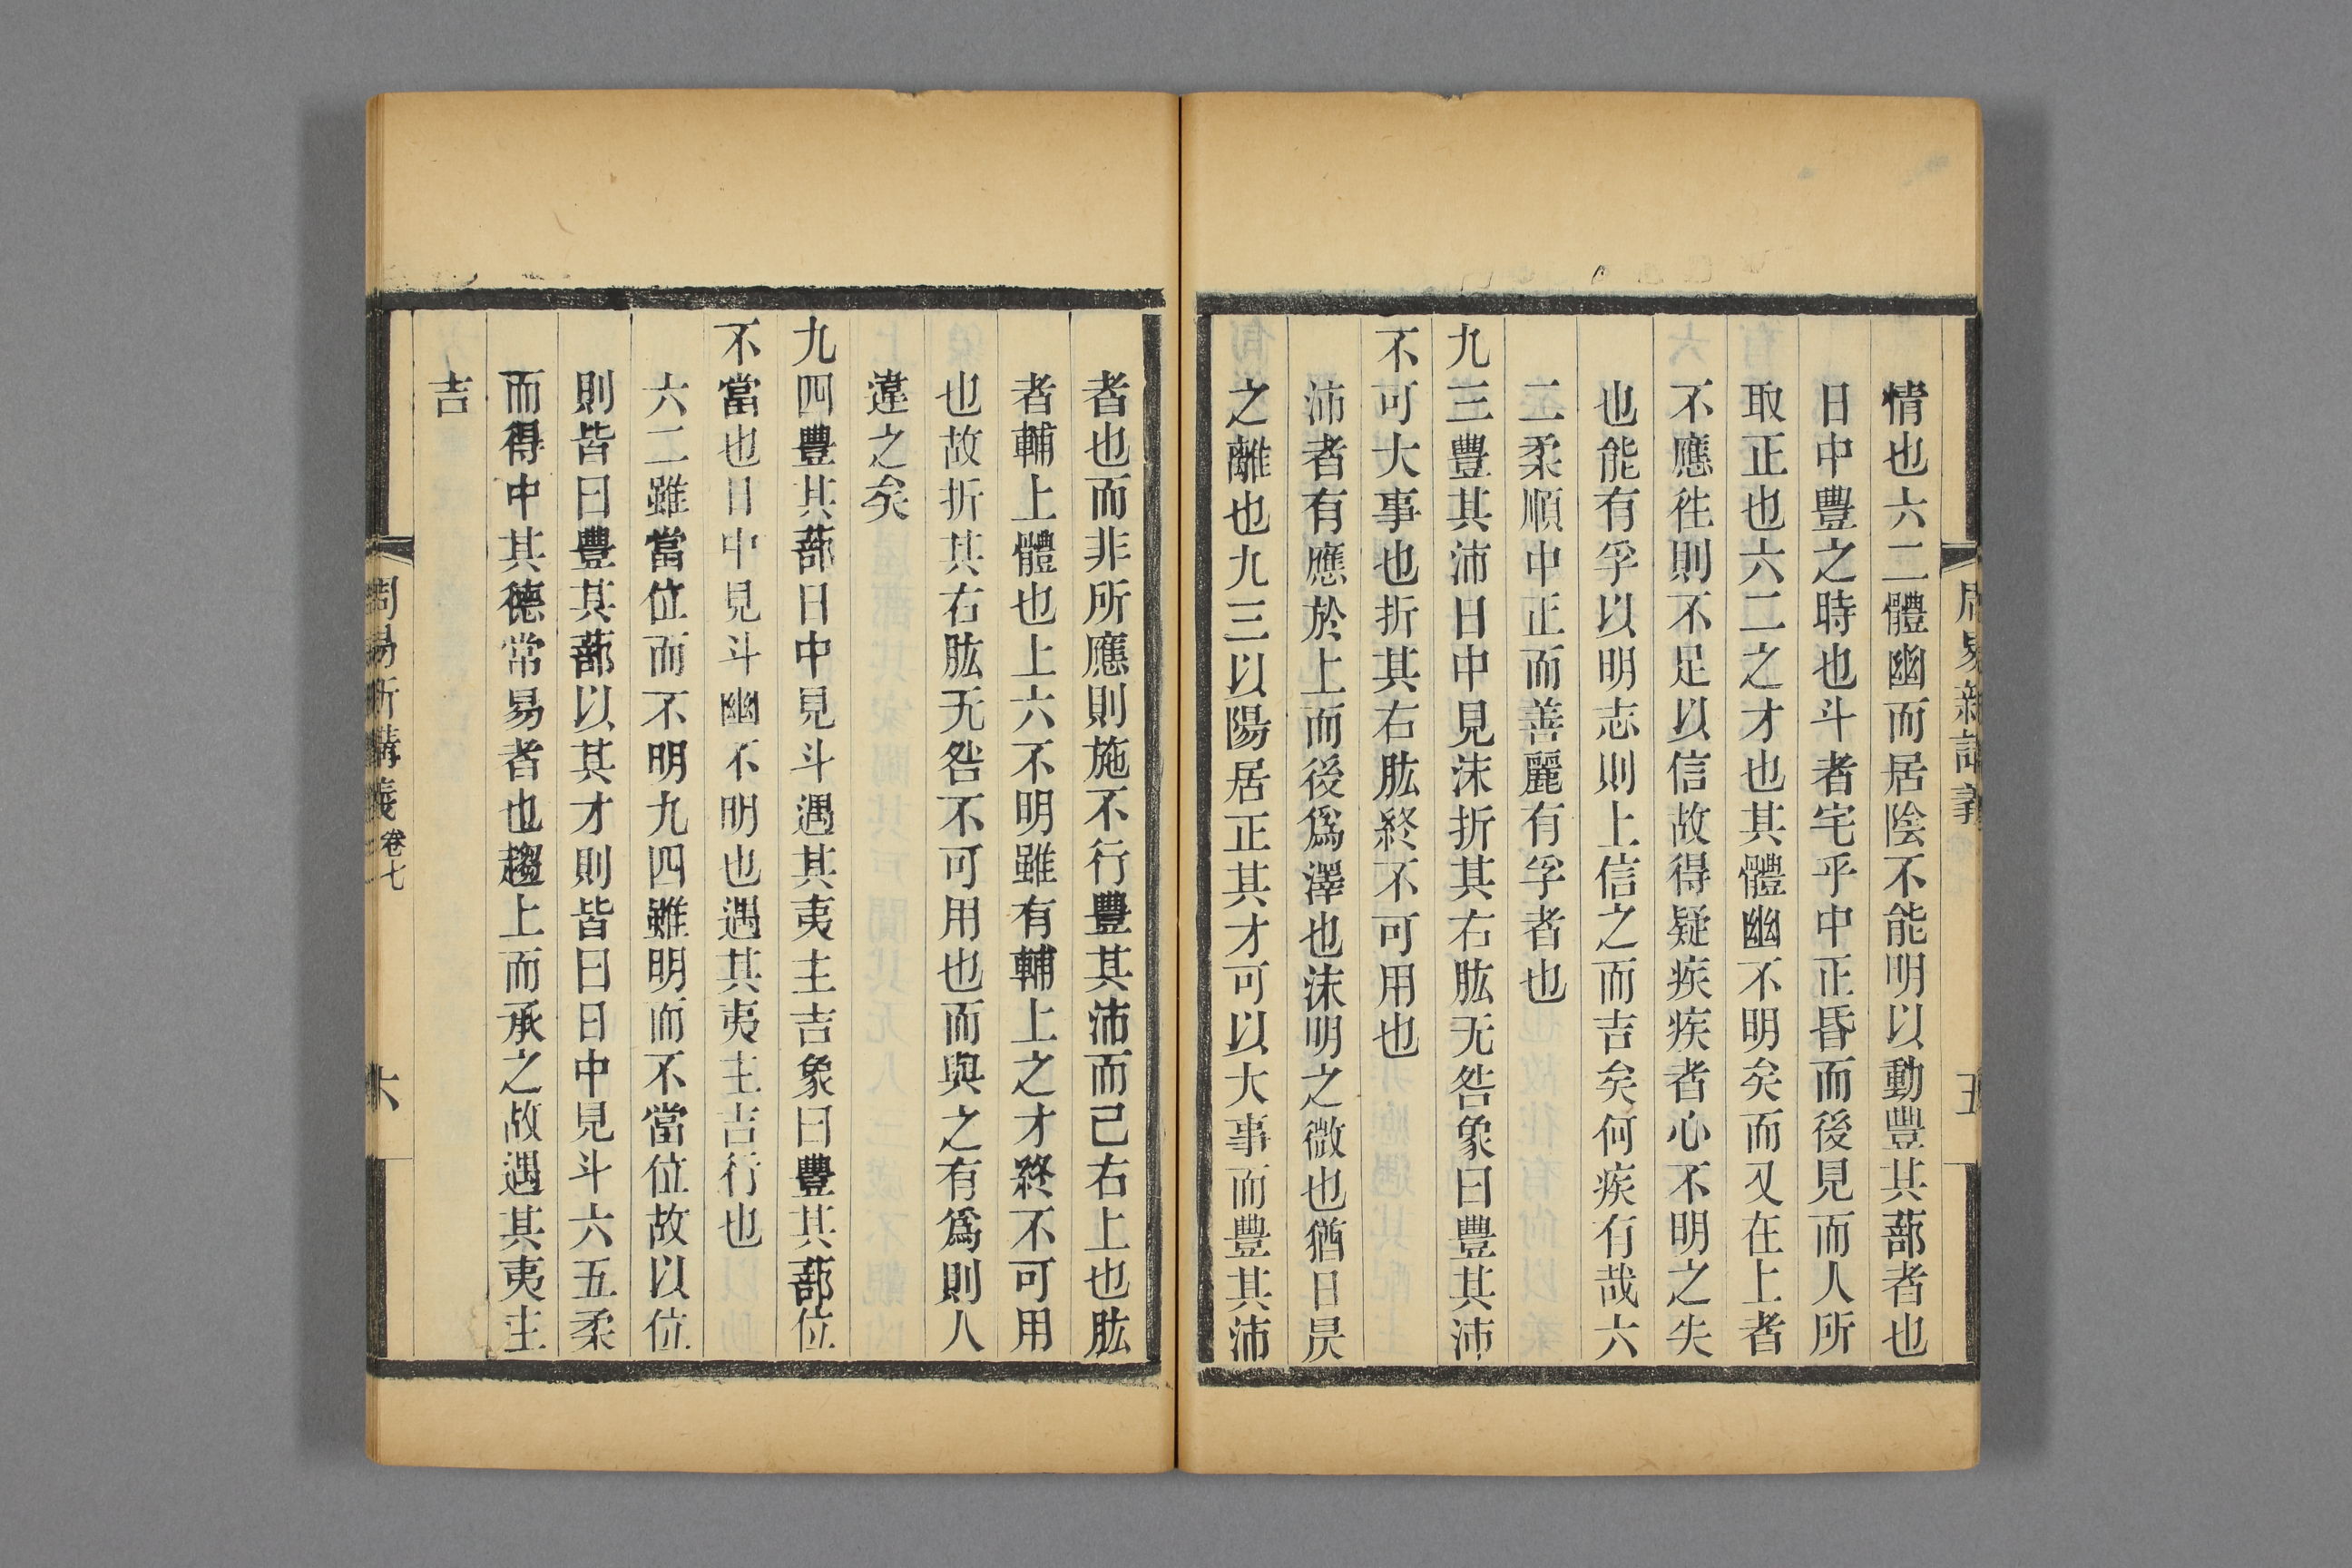 周易新講義
五
情也六二體幽而居陰不能明以動豐其蔀者也
日中豐之時也斗者宅乎中正昏而後見而人所
取正也六二之才也其體幽不明矣而又在上者
不應徃則不足以信故得疑疾疾者心不明之失
也能有孚以明志則上信之而吉矣何疾有哉六
二柔順中正而善麗有孚者也
九三豐其沛日中見沬折其右肱无咎象曰豐其沛
不可大事也折其右肱終不可用也
沛者有應於上而後爲澤也沬明之微也猶日昃
之離也九三以陽居正其才可以大事而豐其沛
者也而非所應則施不行豐其沛而已右上也肱
者輔上體也上六不明雖有輔上之才終不可用
也故折其右肱无咎不可用也而與之有爲則人
違之矣
九四豐其蔀日中見斗遇其夷主吉象曰豐其蔀位
不當也日中見斗幽不明也遇其夷主吉行也
六二雖當位而不明九四雖明而不當位故以位
則皆曰豐其蔀以其才則皆曰日中見斗六五柔
而得中其德常易者也趨上而承之故遇其夷主
吉
周易新講義 卷七
六